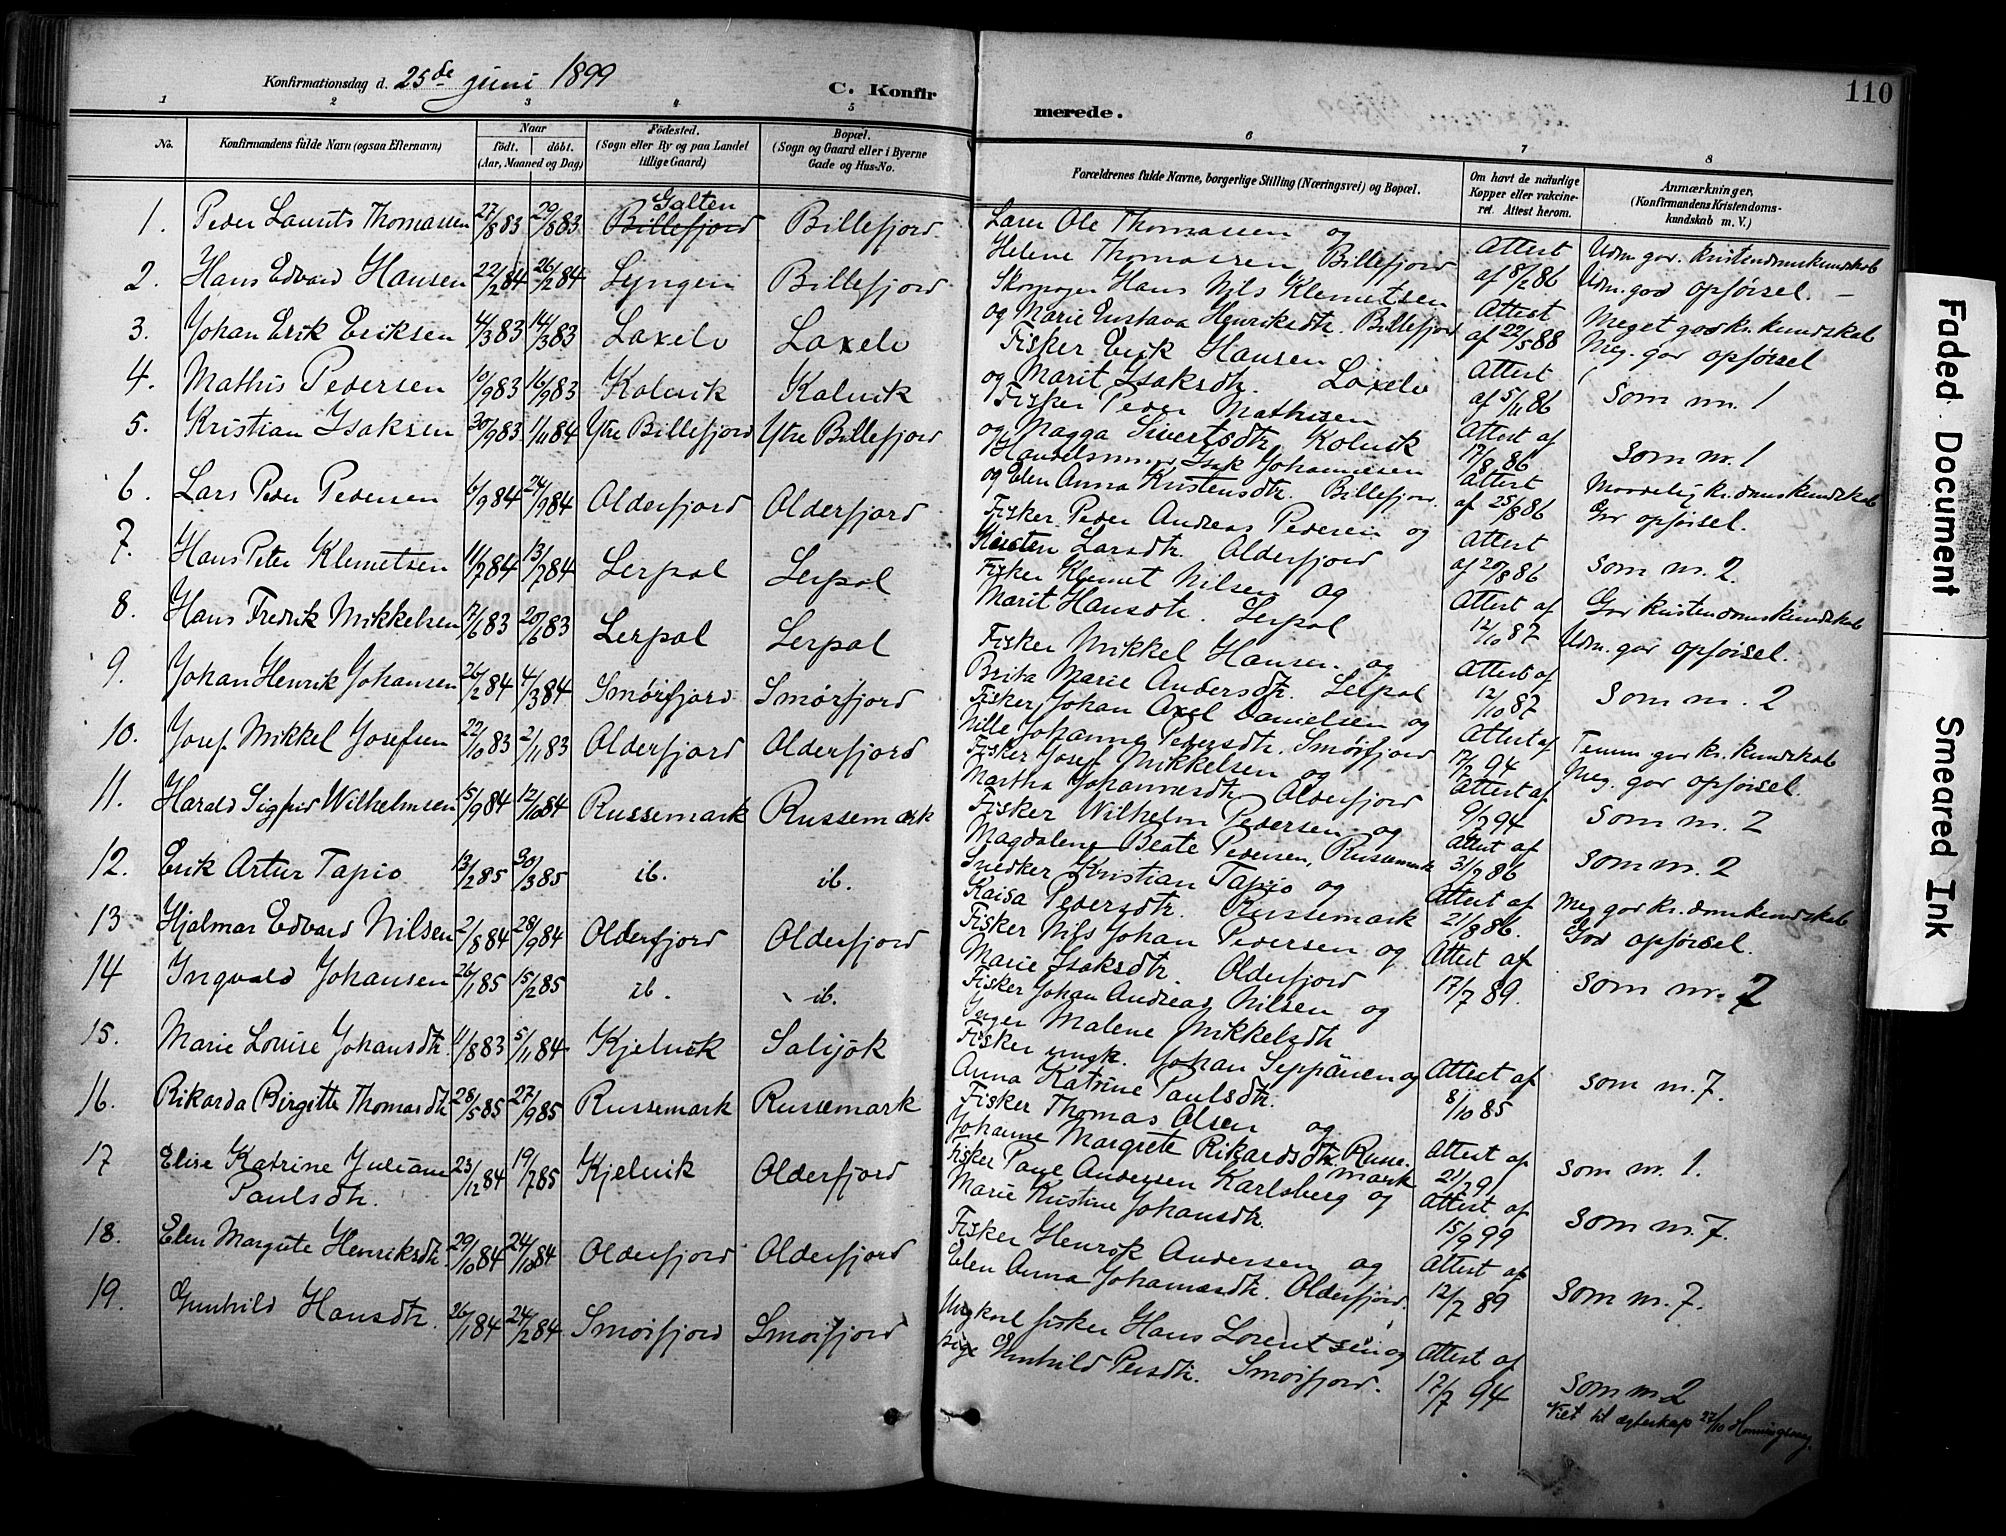 Konfirmationsdag d. 25de juni 1899
C. Konfirmerede.
110
1 2 3 4 5 6 7 8
No.
Konfirmandens fulde Navn (ogsaa Efternavn)
Naar
født. døbt.
(Aar, Maaned og Dag)
Fødested.
(Sogn eller By og paa Landet
tillige Gaard)
Bopæl.
(Sogn og Gaard eller i Byerne
Gade og Hus-No.
Forældrenes fulde Navne, borgerlige Stilling (Næringsvei) og Bopæl.
Om havt de naturlige
Kopper eller vakcine-
ret. Attest herom.
Anmærkninger.
(Konfirmandens Kristendoms-
kundskab m. V.)
1. Peder Laurits Thomassen 27/8 83 29/8 83 Billefjord Galten Billefjord
Ole Thomassen og
Helene Thomassen Billefjord
Attest
af 8/2 86
Udm. god. kristendomskundskab
Udm. god opførsel. —
2. Hans Edvard Hansen 22/2 84 26/2 84 Lyngen Billefjord
Hans Nils Klemetsen
og Marie Gustava Henriksdtr. Billefjord
Attest
af 22/5 88
Meget god kr. kundskab
Meg. god opførsel
3. Johan Erik Eriksen 4/3 83 14/3 83 Laxelv Laxelv
Fisker Erik Hansen
og Marit Isaksdtr. Laxelv
Attest
af 5/11 86
Som nr. 1
4. Mathis Pedersen 10/9 83 16/9 83 Kolvik Kolvik
Fisker Peder Mathisen
og Magga Sivertsdtr. Kolvik
Attest af
17/8 86
Som nr. 1
5. Kristian Isaksen 30/9 83 1/11 84 Ytre Billefjord Ytre Billefjord
Handelsmand Isak Johannesen
og Elen Anna Kristensdtr. Billefjord.
Attest
af 25/8 86
Maadelig kr.domskundskab
God opførsel.
6. Lars Peder Pedersen 6/9 84 24/9 84 Olderfjord Olderfjord
Fisker Peder Andreas Pedersen og
Kirsten Larsdtr. Olderfjord
Attest
af 20/8 86
Som nr. 2.
7. Hans Peter Klemetsen 11/7 84 13/7 84 Lerpol Lerpol
Fisker Klemet Nilsen og
Marit Hansdtr. Lerpol
Attest af
12/10 87
God kristendomskundskab
Udm. god opførsel.
8. Hans Fredrik Mikkelsen 17/6 83 20/6 83 Lerpol Lerpol
Fisker Mikkel Hansen og
Brita Marie Andersdtr. Lerpol
Attest af
12/10 87
Som nr. 2
9. Johan Henrik Johansen 26/2 84 4/3 84 Smørfjord Smørfjord
Fisker Johan Axel Danielsen og
Nille Johanne Pedersdtr. Smørfjord
Attest af
17/7 94
Temm. god kr. kundskab
Meg. god opførsel.
10. Josef Mikkel Josefsen 22/10 83 2/11 83 Olderfjord Olderfjord
Fisker Josef Mikkelsen og
Martha Johannesdtr. Olderfjord
Attest af
9/7 94
Som nr. 2
11. Harald Sigfrid Wilhelmsen 15/9 84 12/10 84 Russemark Russemark
Fisker Wilhelm Pedersen og
Magdalene Beate Pedersen, Russemark
Attest af
31/7 86
Som nr. 2
12. Erik Artur Tapio 13/2 85 30/3 85 ib. ib.
Snedker Kristian Tapio og
Kaisa Pedersdtr. Russemark
Attest af
21/8 86.
Meg god kr.domskundskab
God opførsel.
13 Hjalmar Edvard Nilsen 2/8 84 28/9 84 Olderfjord Olderfjord
Fisker Nils Johan Pedersen og
Marie Isaksdtr. Olderfjord
Attest af
17/7 89.
Som nr. 2
14 Ingvald Johansen 26/1 85 15/2 85 ib. ib.
Fisker Johan Andreas Nilsen og
Inger Malene Mikkelsdtr
15. Marie Louise Johansdtr. 11/8 83 5/11 84 Kjelvik Salijok
Fisker ungk. Johan Seppänen og
Anna Katrine Paulsdtr.
Attest af
8/10 85
som nr. 7.
16. Rikarda Birgitte Thomasdtr 28/5 85 27/9 85 Russemark Russemark
Fisker Thomas Olsen og
Johanne Margrete Rikardsdtr. Russemark
Attest af
21/7 91
som nr. 1.
17 Elise Katrine Juliane
Paulsdtr. 23/12 84 19/7 85 Kjelvik Olderfjord
Fisker Paul Andersen Karlsberg og
Marie Kristine Johansdtr.
Attest af
15/9 99
Som nr. 7.
18. Elen Margrete Henriksdtr. 29/10 84 24/10 84 Olderfjord Olderfjord
Fisker Henrik Andersen og
Elen Anna Johannesdtr. Olderfjord.
Attest af
12/7 89
Som nr. 7.
19. Gunhild Hansdtr. 26/1 84 24/2 84 Smørfjord Smørfjord
Ungkarl fisker Hans Lorentsen og
pige Gunhild Persdtr. Smørfjord.
Attest af
17/7 94
Som nr 2
Viet til ægteskap 27/10 Honningsvåg.
Faded Document Smeared Ink